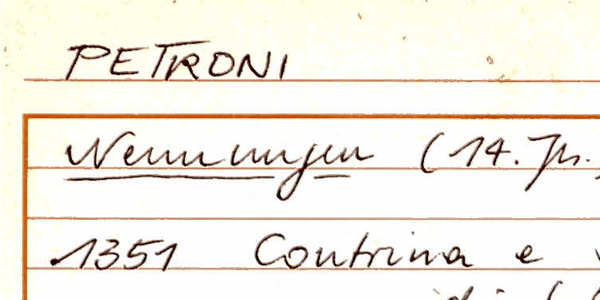 PETRONI
Nennungen (14. Jh.)
1351 Contrina e